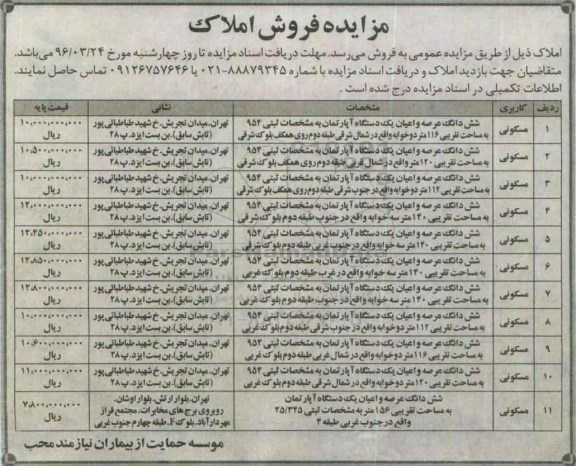 مزایده فروش املاک
املاک ذیل از طریق مزایده عمومی به فروش می‌رسد. مهلت دریافت اسناد مزایده تا روز چهارشنبه مورخ ۹۶/۰۳/۲۴ می‌باشد.
متقاضیان جهت بازدید املاک و دریافت اسناد مزایده با شماره ۸۸۸۷۹۳۴۵-۰۲۱ یا ۰۹۱۲۶۷۵۷۶۴۶ تماس حاصل نمایند.
اطلاعات تکمیلی در اسناد مزایده درج شده است.
ردیف کاربری مشخصات نشانی قیمت پایه
۱ مسکونی شش دانگ عرصه و اعیان یک دستگاه آپارتمان به مشخصات ثبتی ۹۵۴ تهران، میدان تجریش، خ شهید طباطبائی‌پور ۱۰,۰۰۰,۰۰۰,۰۰۰
به مساحت تقریبی ۱۱۶ متر دوخوابه واقع در شمال شرقی طبقه دوم روی همکف بلوک شرقی (تابش سابق)، بن بست ایزد، پ ۲۸ ریال
۲ مسکونی شش دانگ عرصه و اعیان یک دستگاه آپارتمان به مشخصات ثبتی ۹۵۴ تهران، میدان تجریش، خ شهید طباطبائی‌پور ۱۰,۵۰۰,۰۰۰,۰۰۰
به مساحت تقریبی ۱۲۰ متر واقع در شمال غربی طبقه دوم روی همکف بلوک شرقی (تابش سابق)، بن بست ایزد، پ ۲۸ ریال
۳ مسکونی شش دانگ عرصه و اعیان یک دستگاه آپارتمان به مشخصات ثبتی ۹۵۴ تهران، میدان تجریش، خ شهید طباطبائی‌پور ۱۰,۰۰۰,۰۰۰,۰۰۰
به مساحت تقریبی ۱۱۲ متر دوخوابه واقع در جنوب شرقی طبقه دوم روی همکف بلوک شرقی (تابش سابق)، بن بست ایزد، پ ۲۸ ریال
۴ مسکونی شش دانگ عرصه و اعیان یک دستگاه آپارتمان به مشخصات ثبتی ۹۵۴ تهران، میدان تجریش، خ شهید طباطبائی‌پور ۱۲,۰۰۰,۰۰۰,۰۰۰
به مساحت تقریبی ۱۴۰ متر سه خوابه واقع در جنوب طبقه دوم بلوک شرقی (تابش سابق)، بن بست ایزد، پ ۲۸ ریال
۵ مسکونی شش دانگ عرصه و اعیان یک دستگاه آپارتمان به مشخصات ثبتی ۹۵۴ تهران، میدان تجریش، خ شهید طباطبائی‌پور ۱۲,۲۵۰,۰۰۰,۰۰۰
به مساحت تقریبی ۱۴۰ متر سه خوابه واقع در جنوب غربی طبقه دوم بلوک شرقی (تابش سابق)، بن بست ایزد، پ ۲۸ ریال
۶ مسکونی شش دانگ عرصه و اعیان یک دستگاه آپارتمان به مشخصات ثبتی ۹۵۴ تهران، میدان تجریش، خ شهید طباطبائی‌پور ۱۲,۸۵۰,۰۰۰,۰۰۰
به مساحت تقریبی ۱۴۰ متر سه خوابه واقع در غرب طبقه دوم بلوک غربی (تابش سابق)، بن بست ایزد، پ ۲۸ ریال
۷ مسکونی شش دانگ عرصه و اعیان یک دستگاه آپارتمان به مشخصات ثبتی ۹۵۴ تهران، میدان تجریش، خ شهید طباطبائی‌پور ۱۲,۸۰۰,۰۰۰,۰۰۰
به مساحت تقریبی ۱۴۰ متر سه خوابه واقع در جنوب غربی طبقه دوم بلوک غربی (تابش سابق)، بن بست ایزد، پ ۲۸ ریال
۸ مسکونی شش دانگ عرصه و اعیان یک دستگاه آپارتمان به مشخصات ثبتی ۹۵۴ تهران، میدان تجریش، خ شهید طباطبائی‌پور ۱۰,۰۰۰,۰۰۰,۰۰۰
به مساحت تقریبی ۱۱۲ متر دوخوابه واقع در جنوب شرقی طبقه دوم بلوک غربی (تابش سابق)، بن بست ایزد، پ ۲۸ ریال
۹ مسکونی شش دانگ عرصه و اعیان یک دستگاه آپارتمان به مشخصات ثبتی ۹۵۴ تهران، میدان تجریش، خ شهید طباطبائی‌پور ۱۰,۶۰۰,۰۰۰,۰۰۰
به مساحت تقریبی ۱۱۶ متر دوخوابه واقع در شمال غربی طبقه دوم بلوک غربی (تابش سابق)، بن بست ایزد، پ ۲۸ ریال
۱۰ مسکونی شش دانگ عرصه و اعیان یک دستگاه آپارتمان به مشخصات ثبتی ۹۵۴ تهران، میدان تجریش، خ شهید طباطبائی‌پور ۱۱,۰۰۰,۰۰۰,۰۰۰
به مساحت تقریبی ۱۲۰ متر دوخوابه واقع در شمال شرقی طبقه دوم بلوک غربی (تابش سابق)، بن بست ایزد، پ ۲۸ ریال
۱۱ مسکونی شش دانگ عرصه و اعیان یک دستگاه آپارتمان تهران، بلوار ارتش، بلوار اوشان، ۷,۸۰۰,۰۰۰,۰۰۰
به مساحت تقریبی ۱۵۶ متر به مشخصات ثبتی ۲۵/۳۲۵ روبروی برج های مخابرات، مجتمع فراز ریال
واقع در جنوب غربی طبقه ۴ مهرداد آباد، بلوک F، طبقه چهارم جنوب غربی
موسسه حمایت از بیماران نیازمند محب